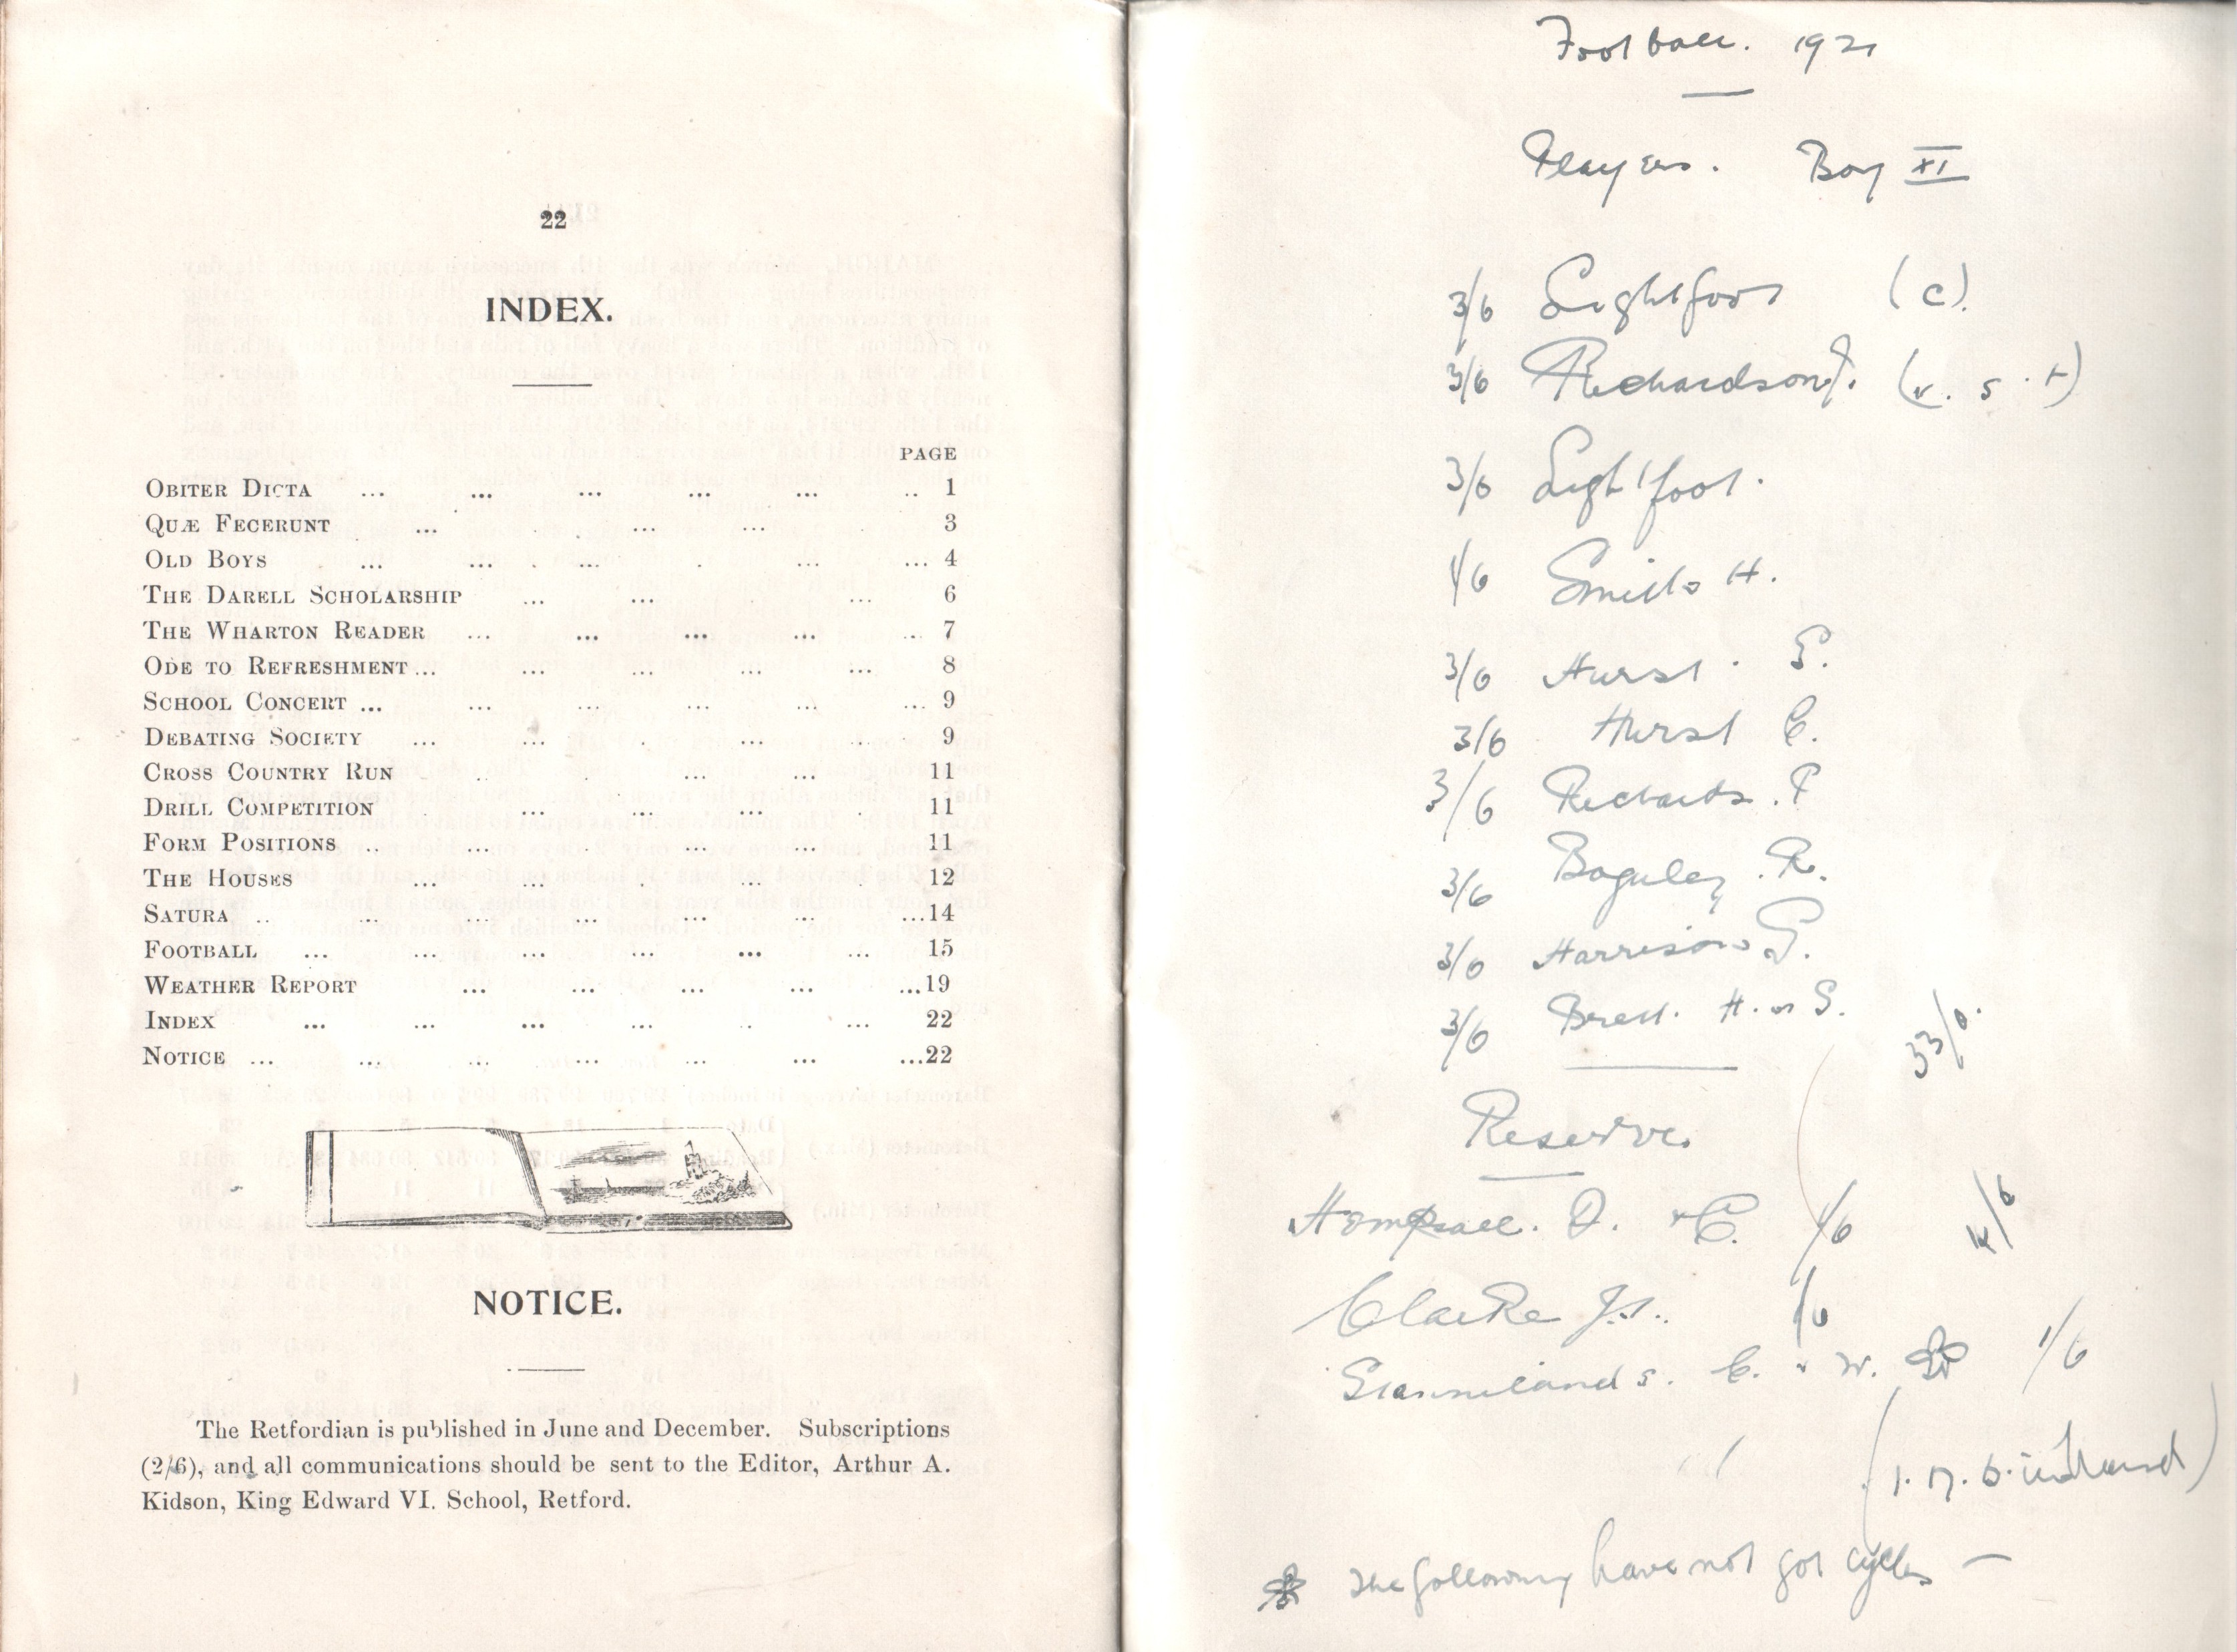 22
INDEX.
PAGE
OBITER DICTA ... ... ... ... ... .. 1
QUÆ FECERUNT ... . ... ... 3
OLD BOYS ... ... . ... . ... ... 4
THE DARELL SCHOLARSHIP ... ... ... 6
THE WHARTON READER ... ... ... ... .. 7
ODE TO REFRESHMENT... ... ... ... ... 8
SCHOOL CONCERT ... ... ... ... ... ... 9
DEBATING SOCIETY ... ... . ... . 9
CROSS COUNTRY RUN .. . ... ... 11
DRILL COMPETITION ... ... ... 11
FORM POSITIONS .. ... ... ... 11
THE HOUSES ... ... . ... . 12
SATURA .. ... ... ... ... ... ...14
FOOTBALL ... ... ... ... ... ... 15
WEATHER REPORT ... ... ... ... ...19
INDEX ... ... ... ... .. ... 22
NOTICE ... ... ... ... ... ... ...22
NOTICE.
The Retfordian is published in June and December. Subscriptions
(2/6), and all communications should be sent to the Editor, Arthur A.
Kidson, King Edward VI. School, Retford.
Football. 1921
Players. Boy XI
3/6 Lightfoot (C).
3/6 Richardson J.
3/6 Lightfoot.
1/6 Smith H.
3/6 Hurst. G.
3/6 Hurst C.
3/6 Richards. P
3/6 Baguley. R.
3/6 Harrison G.
3/6 Brett. H. or G.
33/0.
Reserves
Hompsall. D. C. 1/6
4/6
Clarke J. 1/6
Stannilands. C. W. 1/6
* The following have not got cycles —